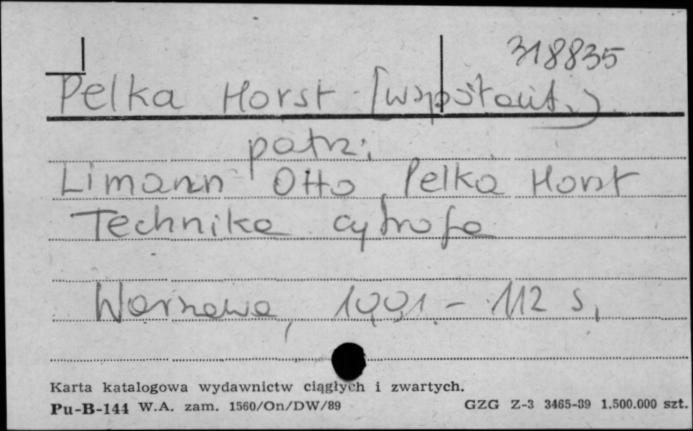 318835
Pelka Horst [współaut.)
patrz:
Limann Otto, Pelka Horst
Technika cyfrowa
Warszawa, 1991. - 112 s.
Karta katalogowa wydawnictw ciągłych i zwartych.
Pu-B-144 W.A. zam. 1560/On/DW/89 GZG Z-3 3465-89 1.500.000 szt.